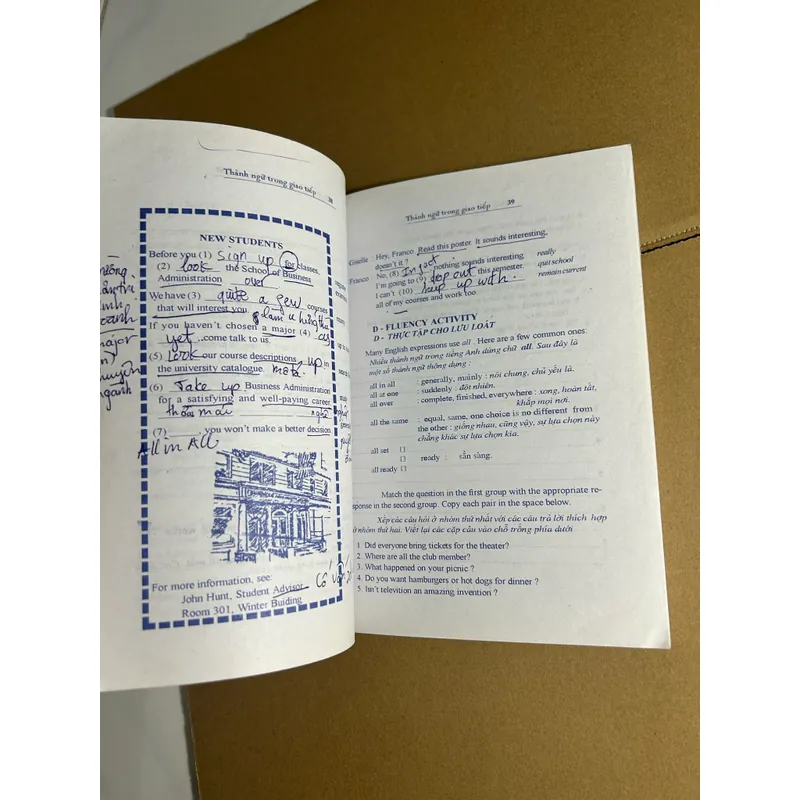 Thành ngữ trong giao tiếp 38
NEW STUDENTS
Before you (1) Sign up for classes,
(2) look the School of Business
Administration over
We have (3) quite a few courses
that will interest you.
If you haven't chosen a major (4)
yet ..come talk to us.
(5) Look our course descriptions up in
the university catalogue. mô tả
(6) Take up Business Administration
for a satisfying and well-paying career
thoải mái
(7) you won't make a better decision
All in All
For more information, see:
John Hunt, Student Advisor Cố vấn
Room 301, Winter Buiding
major
ngành
Thành ngữ trong giao tiếp 39
Giselle : Hey, Franco. Read this poster. It sounds interesting,
doesn't it ?
Franco : No, (8) In fact nothing sounds interesting. really
I'm going to (9) drop out this semester. quit school
I can't (10) keep up with remain current
all of my courses and work too.
D - FLUENCY ACTIVITY
D - THỰC TẬP CHO LƯU LOÁT
Many English expressions use all . Here are a few common ones:
Nhiều thành ngữ trong tiếng Anh dùng chữ all. Sau đây là
một số thành ngữ thông dụng :
all in all : generally, mainly : nói chung, chủ yếu là.
all at one : suddenly : đột nhiên.
all over : complete, finished, everywhere : xong, hoàn tất,
khắp mọi nơi.
all the same : equal, same, one choice is no different from
the other : giống nhau, cũng vậy, sự lựa chọn này
chẳng khác sự lựa chọn kia.
all set []
[] ready : sẵn sàng.
all ready []
Match the question in the first group with the appropriate re-
sponse in the second group. Copy each pair in the space below.
Xếp các câu hỏi ở nhóm thứ nhất với các câu trả lời thích hợp
ở nhóm thứ hai. Viết lại các cặp câu vào chỗ trống phía dưới
1 Did everyone bring tickets for the theater?
2. Where are all the club member?
3. What happened on your picnic ?
4. Do you want hamburgers or hot dogs for dinner ?
5. Isn't televition an amazing invention ?